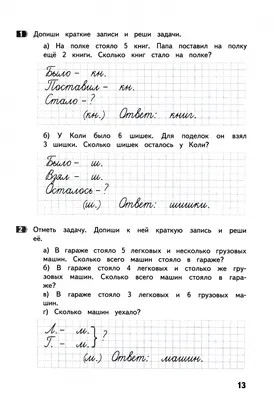 1 Допиши краткие записи и реши задачи.
а) На полке стояло 5 книг. Папа поставил на полку
ещё 2 книги. Сколько книг стало на полке?
Было – кн.
Поставил – кн.
Стало – ?
(кн.) Ответ: книг.
б) У Коли было 6 шишек. Для поделок он взял
3 шишки. Сколько шишек осталось у Коли?
Было – ш.
Взял – ш.
Осталось – ?
(ш.) Ответ: шишки.
2 Отметь задачу. Допиши к ней краткую запись и реши
её.
а) В гараже стояло 5 легковых и несколько грузовых
машин. Сколько всего машин стояло в гараже?
б) В гараже стояло 4 легковых и столько же гру-
зовых машин. Сколько всего машин стояло в га-
раже?
в) В гараже стояло 3 легковых и 6 грузовых ма-
шин.
г) Сколько машин уехало?
Л. – м.
Г. – м. } ?
(м.) Ответ: машин.
13